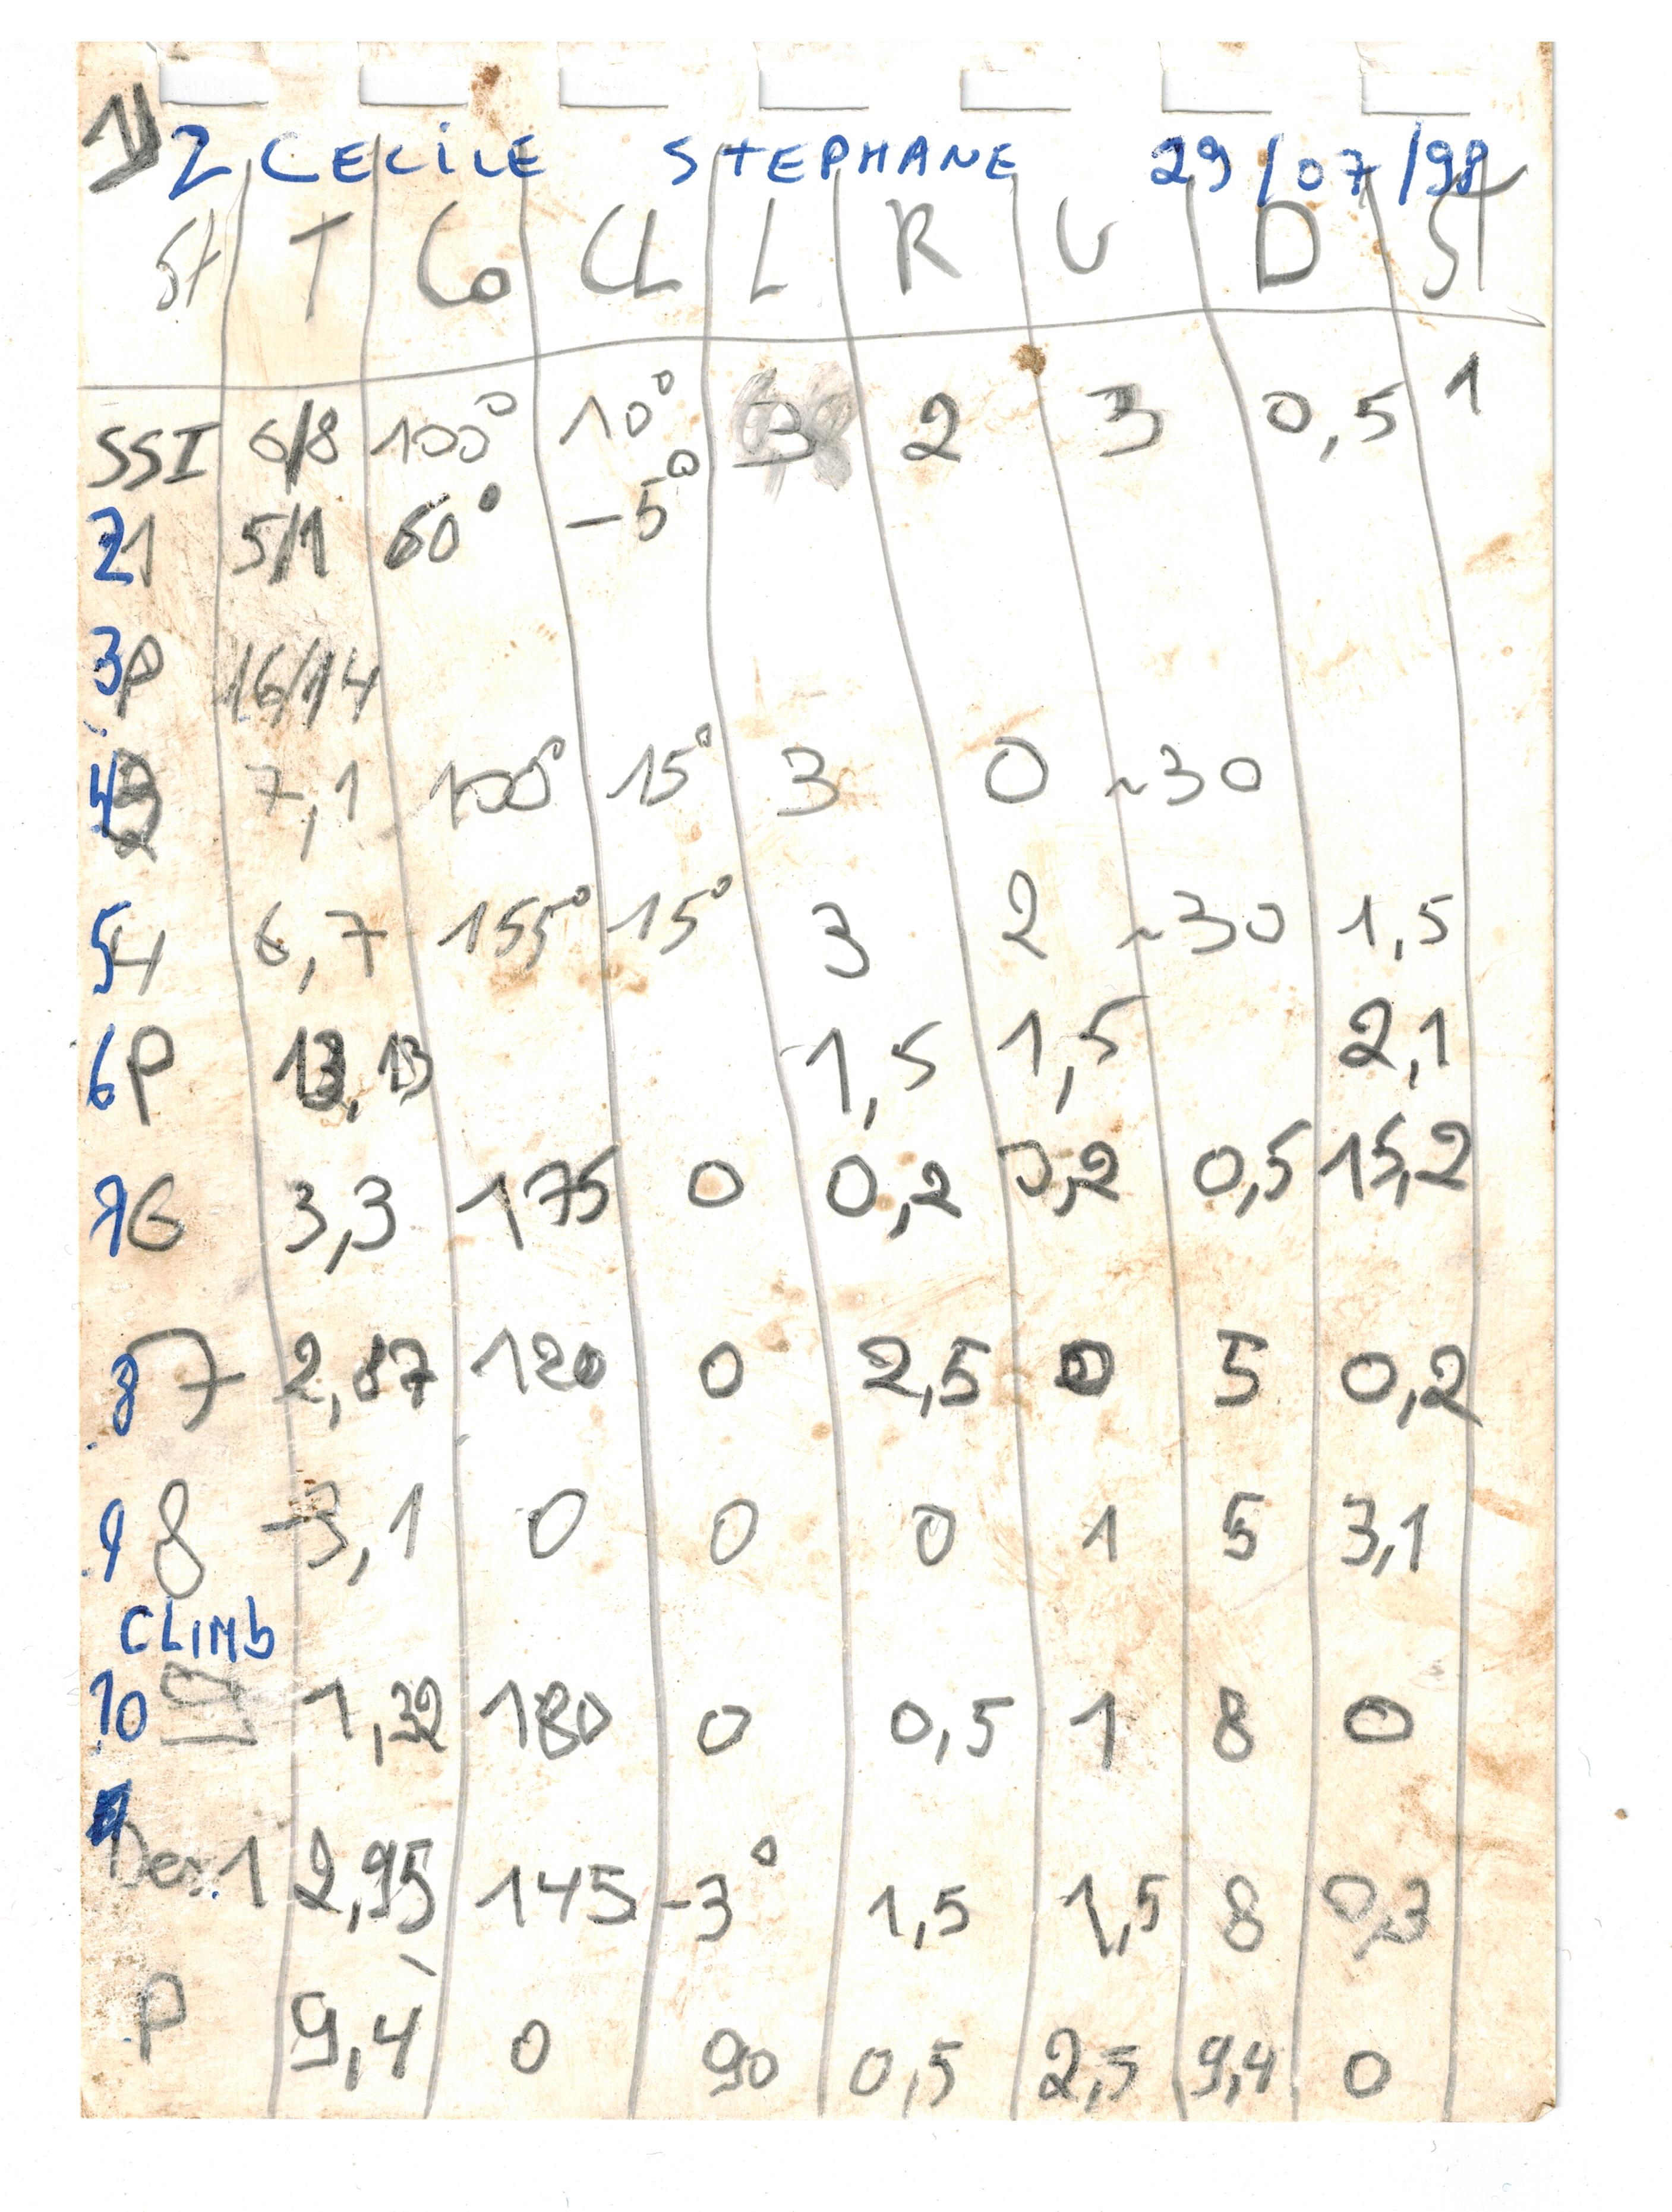 2 CECILE STEPHANE 29/07/98
St T Co CL L R U D ST
SSI 6/8 100° 10° 3 2 3 0,5 1
21 5/1 60° -5°
3P 16/14
4 7,1 100° 15° 3 0 ~30
54 6,7 155° 15° 3 2 ~30 1,5
6P 13,13 1,5 1,5 2,1
76 3,3 175 0 0,2 0,2 0,5 15,2
87 2,87 120 0 2,5 0 5 0,2
9 8 3,1 0 0 0 1 5 3,1
CLIMb
10 1,32 180 0 0,5 1 8 0
1 2,95 145 -3° 1,5 1,5 8 0,3
P 9,4 0 90 0,5 2,5 9,4 0